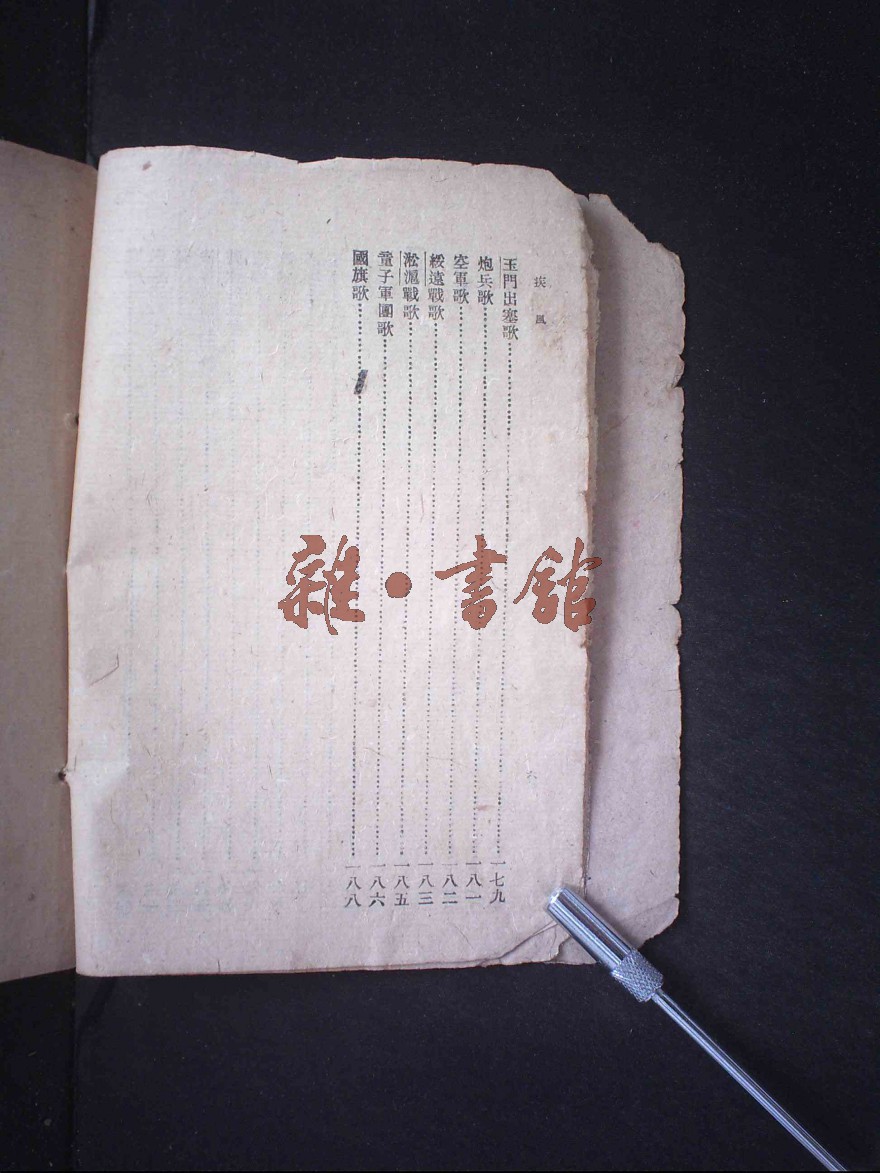 疾風
玉門出塞歌…………一七九
炮兵歌…………一八一
空軍歌…………一八二
綏遠戰歌…………一八三
淞滬戰歌…………一八五
童子軍團歌…………一八六
國旗歌…………一八八
六
雜·書館